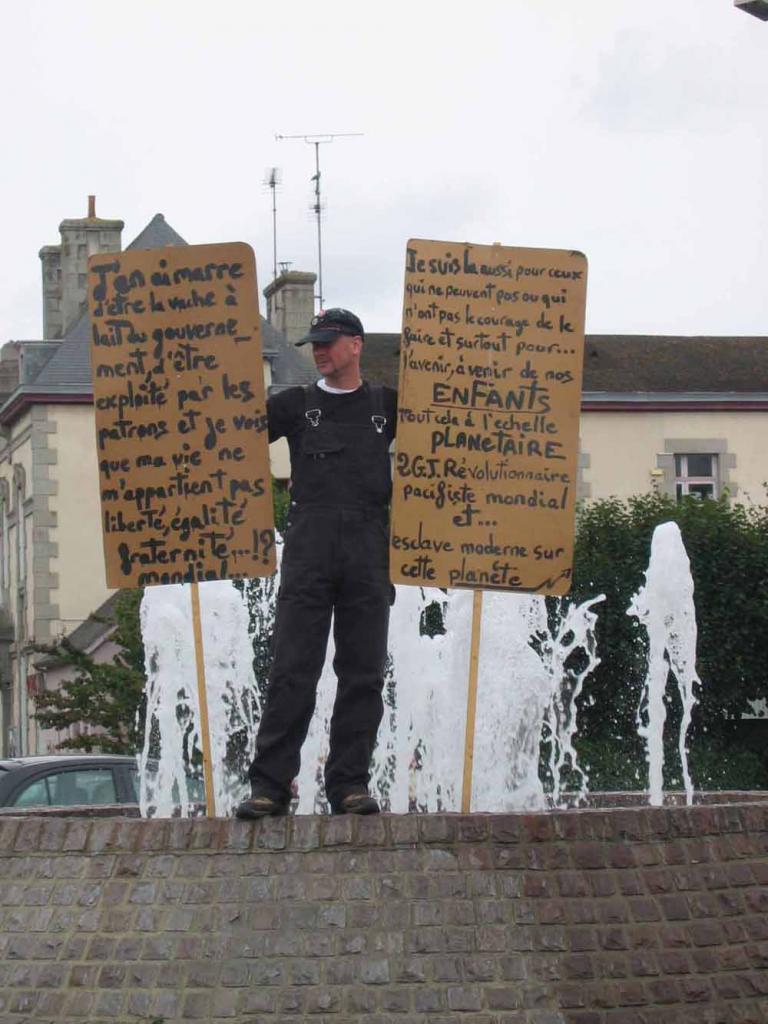 J'en ai marre
d'être la vache à
lait du gouverne_
ment, d'être
exploité par les
patrons et je vois
que ma vie ne
m'appartient pas
liberté, égalité
fraternité...!?
mondial
Je suis la aussi pour ceux
qui ne peuvent pas ou qui
n'ont pas le courage de le
faire et surtout pour...
l'avenir, à venir de nos
ENFANTS
tout cela à l'echelle
PLANETAIRE
2G.J. Révolutionnaire
pacifiste mondial
et...
esclave moderne sur
cette planéte